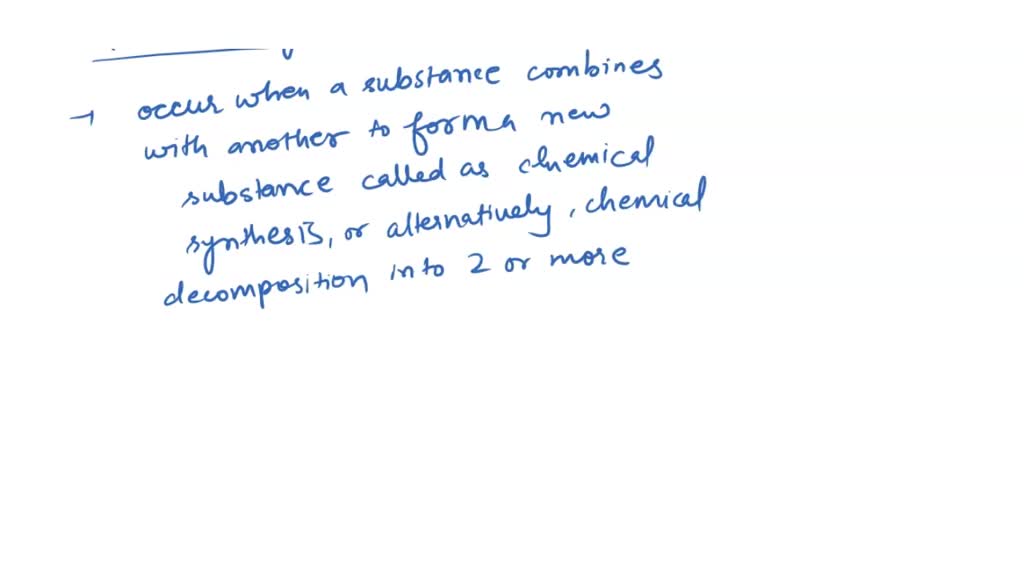 → occur when a substance combines
with another to form a new
substance called as chemical
synthesis, or alternatively, chemical
decomposition into 2 or more